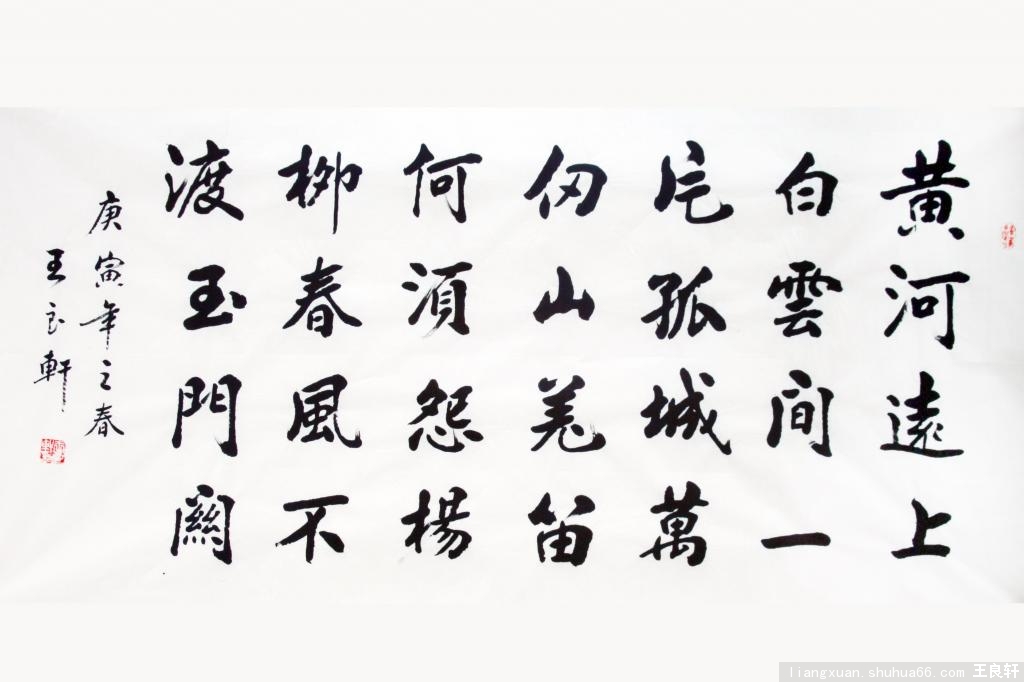 黃河遠上
白雲間一
片孤城萬
仞山羌笛
何須怨楊
柳春風不
渡玉門關
庚寅年之春
王良軒
liangxuan.shuhua66.com 王良轩